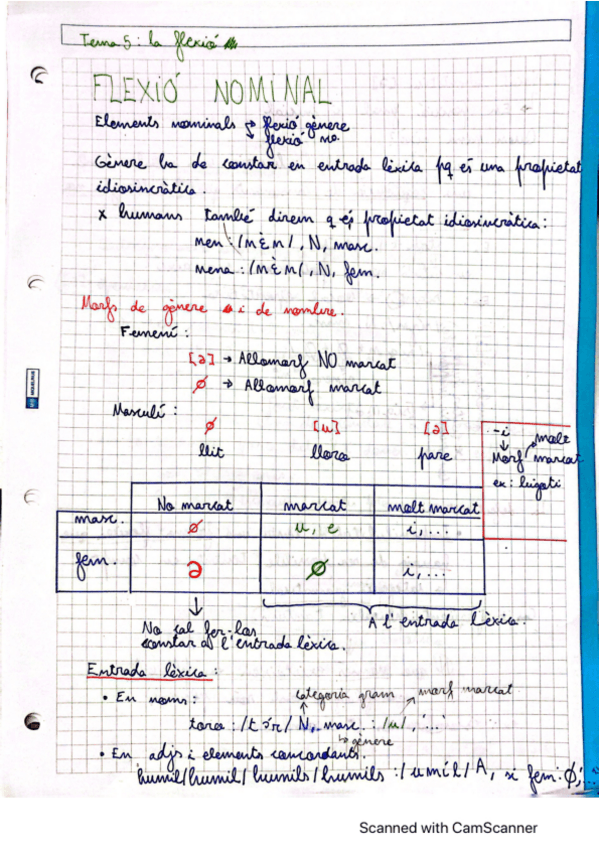 Tema 5: la flexió
FLEXIÓ NOMINAL
Elements nominals → flexió gènere
→ flexió nº
Gènere ha de constar en entrada lèxica pq és una propietat
idiosincràtica.
x humans també direm q és propietat idiosincràtica:
nen : /nɛ̀n/, N, masc.
nena : /nɛ̀n/, N, fem.
Morfs de gènere i de nombre.
Femení :
[ə] → Allomorf NO marcat
ø → Allomorf marcat
Masculí :
ø [u] [ə]
llit lloro pare
-i molt
↓
Morf marcat
ex: bigoti
No marcat marcat molt marcat
masc. ø u, e i, ...
fem. ə ø i, ...
↓
No cal fer-los
constar a l'entrada lèxica.
A l'entrada lèxica.
Entrada lèxica :
categoria gram morf marcat
• En noms:
toro : /tɔ́r/ N, masc. : /u/, '...'
↳ gènere
• En adjs i elements concordants.
humil/humil/humils/humils : /umíl/ A, si fem: ø, '...
Scanned with CamScanner